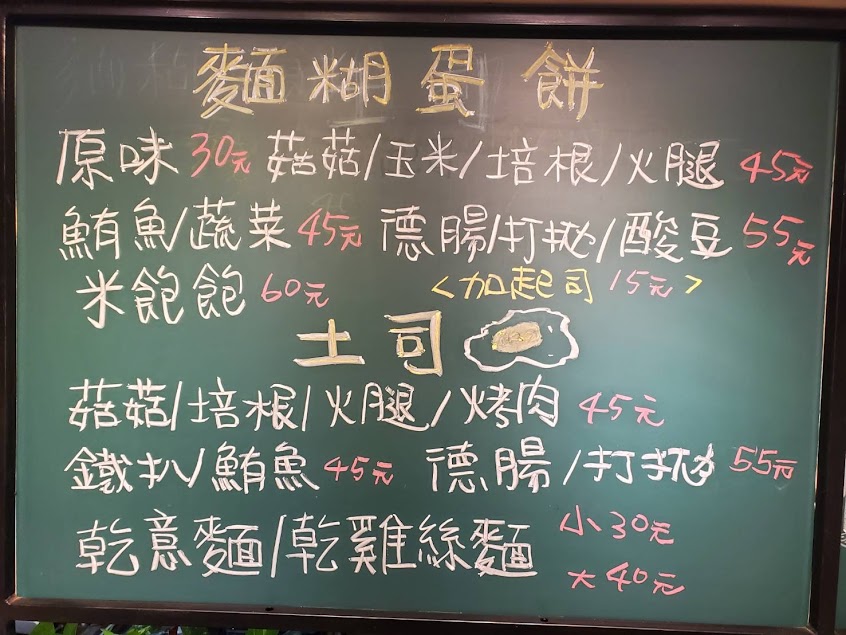 麵糊蛋餅
原味 30元 菇菇/玉米/培根/火腿 45元
鮪魚/蔬菜 45元 德腸/打拋/酸豆 55元
米飽飽 60元 <加起司 15元>
土司
菇菇/培根/火腿/烤肉 45元
鐵扒/鮪魚 45元 德腸/打拋 55元
乾意麵/乾雞絲麵 小30元
大40元